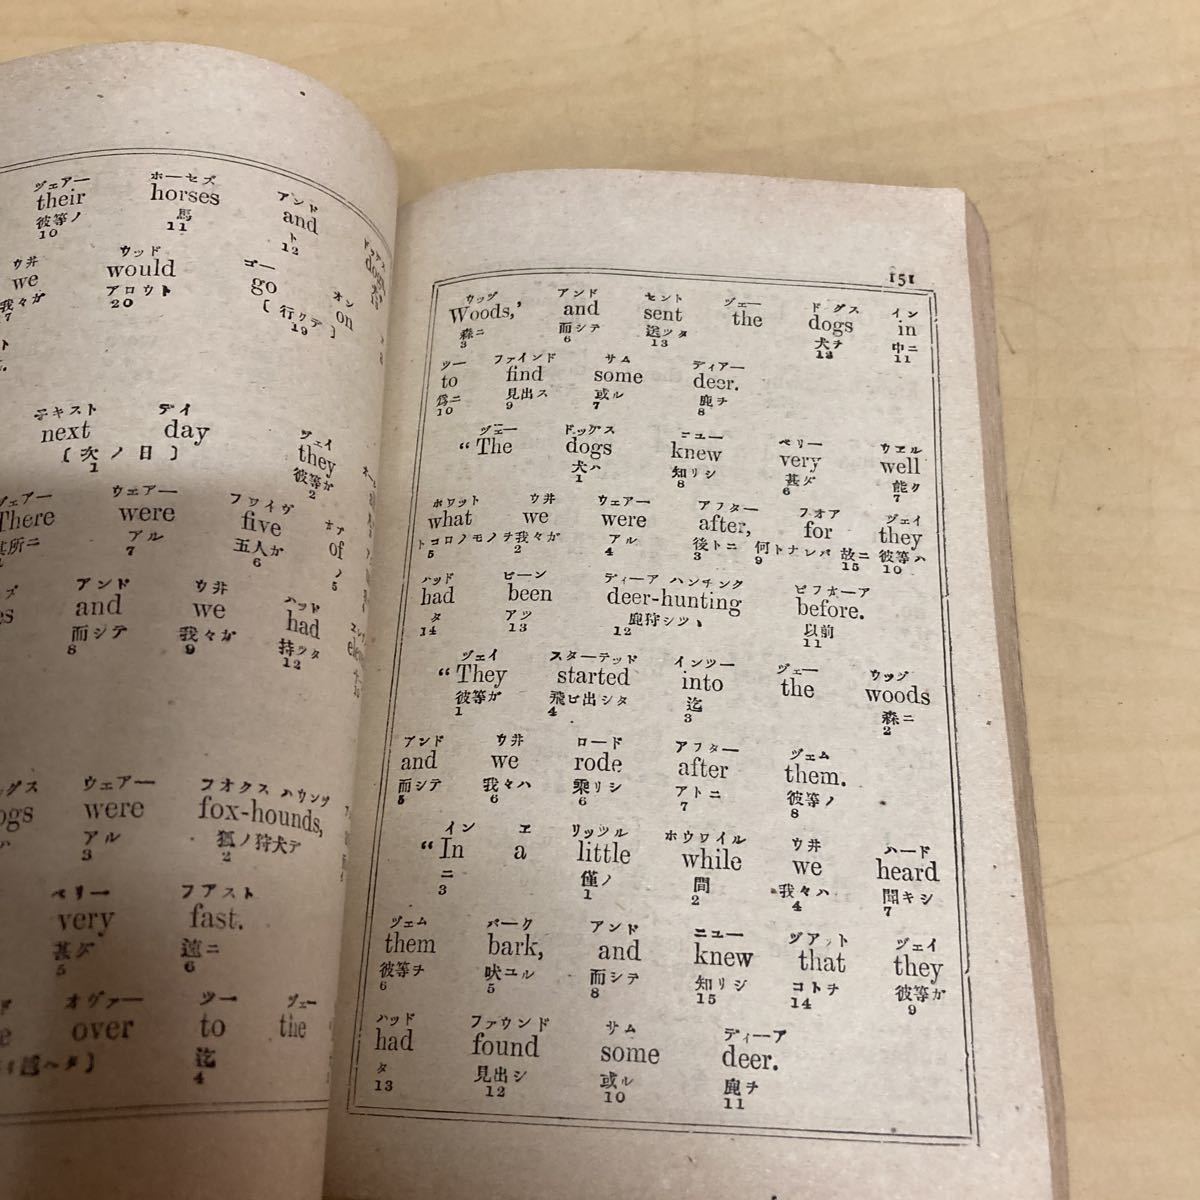 ヅェアー ホーセズ アンド
their horses and
彼等ノ 馬 ト
10 11 12
dogs
ウ井 ウッド ゴー オン
we would go on
我々ガ アロウト 〔行クテ〕
7 20 19
テキスト デイ ヅェイ
next day they
〔次ノ日〕 彼等ガ
1 2
ヅェアー ウェアー フワイヴ オブ
There were five of
アル 五人ガ ノ
7 6 5
アンド ウ井 ハッド
and we had
而シテ 我々ガ 持ツタ
8 9 12
ウェアー フオクス ハウンヅ
were fox-hounds,
アル 狐ノ狩犬デ
3 2
ベリー フアスト
very fast.
甚ダ 速ニ
5 6
オヴァー ツー ヅェー
over to the
迄
4
151
ウッヅ アンド セント ヅェー ドグス イン
Woods,' and sent the dogs in
森ニ 而シテ 送ツタ 犬チ 中ニ
3 6 13 12 11
ツー ファインド サム ディアー
to find some deer.
爲ニ 見出ス 或ル 鹿チ
10 9 7 8
ヅェー ドッグス ニュー ベリー ウェル
“The dogs knew very well
犬ハ 知リシ 甚ダ 能ク
1 8 6 7
ホワット ウ井 ウェアー アフター フオア ヅェイ
what we were after, for they
トコロノモノチ 我々ガ アル 後トニ 何トナレバ 故ニ 彼等ハ
5 2 4 3 9 15 10
ハッド ビーン ディーア ハンチンク ビフオーア
had been deer-hunting before.
タ アツ 鹿狩シツヽ 以前
14 13 12 11
ヅェイ スターテッド インツー ヅェー ウッヅ
“They started into the woods
彼等ガ 飛ビ出シタ 迄 森ニ
1 4 3 2
アンド ウ井 ロード アフター ヅェム
and we rode after them.
而シテ 我々ハ 乘リシ アトニ 彼等ノ
5 6 6 7 8
イン ヱ リッツル ホウワイル ウ井 ハード
“In a little while we heard
ニ 僅ノ 間 我々ハ 聞キシ
3 1 2 4 7
ヅェム バーク アンド ニュー ヅアット ヅェイ
them bark, and knew that they
彼等チ 吠ユル 而シテ 知リシ コトチ 彼等ガ
6 5 8 15 14 9
ハッド ファウンド サム ディーア
had found some deer.
タ 見出シ 或ル 鹿チ
13 12 10 11